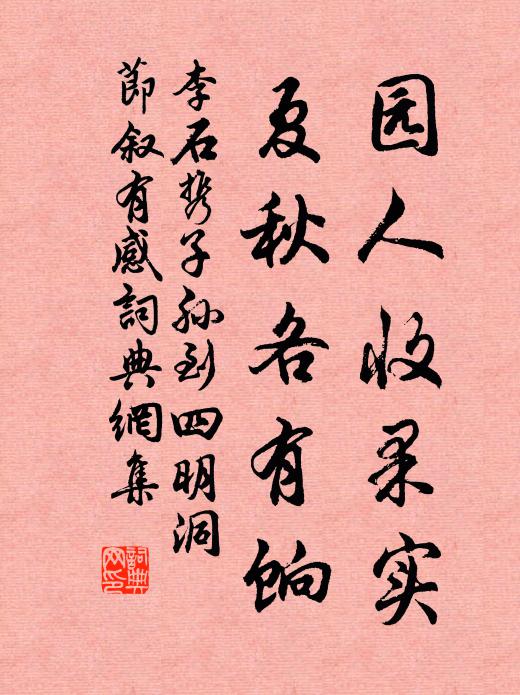 园人收果实
夏秋各有饷
李石携子孙到四明洞
节叙有感詞典網集
詞典网印